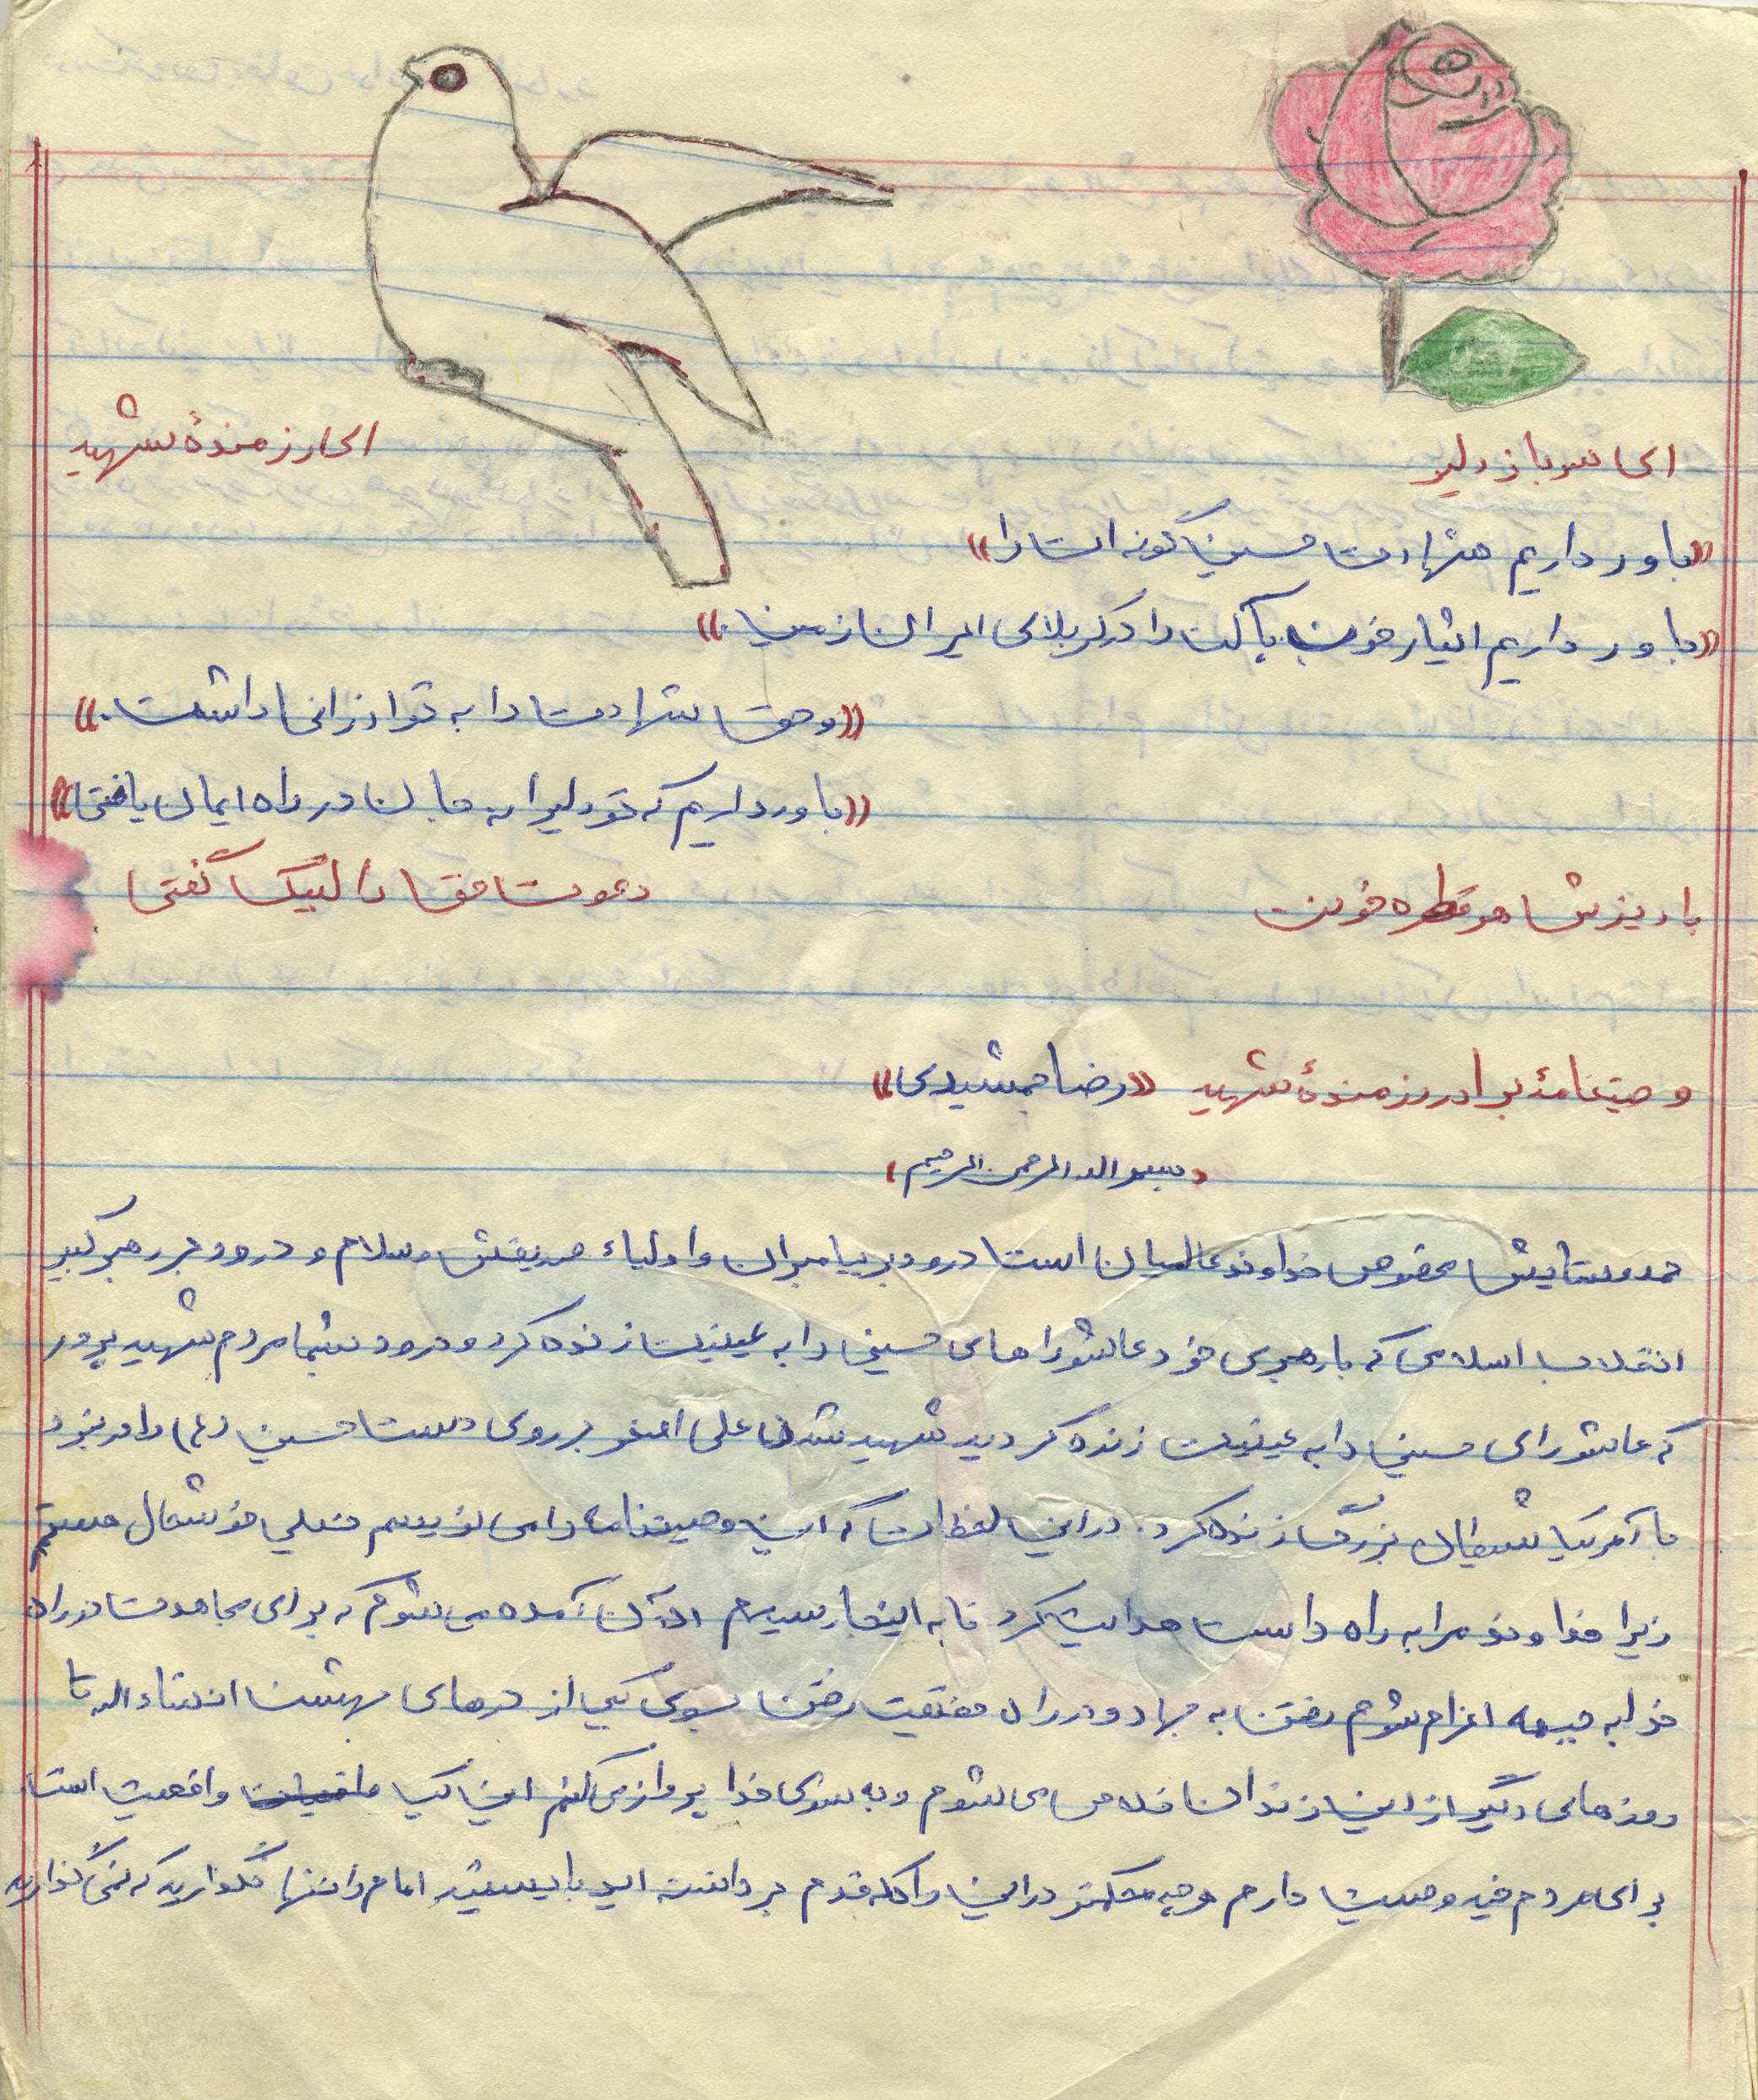 ای سرباز دلیر
ای رزمندهٔ شهید
«باور داریم شهادت حسین گونه ات را»
«باور داریم ایثار خون پاکت را در کربلای ایران زمین.»
«و حق شهادت را به تو ارزانی داشت.»
«باور داریم که تو دلیرانه جان در راه ایمان باختی»
با ریزش هر قطره خونت
دعوت حق را لبیک گفتی
وصیتنامهٔ برادر رزمندهٔ شهید «رضا جمشیدی»
«بسم الله الرحمن الرحیم»
حمد و ستایش مخصوص خداوند عالمیان است درود بر پیامبران و اولیاء صدیقش و سلام و درود بر رهبر کبیر
انقلاب اسلامی که با رهبری خود عاشوراهای حسینی را به عینیت زنده کرد و درود بشما مردم شهید پرور
که عاشورای حسینی را به عینیت زنده کردید شهید شدن علی اصغر بر روی دست حسین (ع) را در نبرد
با آمریکا شیطان بزرگ زنده کرد. در این لحظات که این وصیتنامه را می نویسم خیلی خوشحال هستم
زیرا خداوند مرا به راه راست هدایت کرد تا به اینجا رسیدم الآن آمده می شوم که برای مجاهدت در راه
خدا به جبهه اعزام شوم رفتن به جهاد و در حقیقت رفتن بسوی یکی از درهای بهشت انشاءالله تا
روزهای دیگر از این زندان خلاص می شوم و به سوی خدا پرواز می کنم این یک واقعیت است
برای مردم وصیت دارم در این راه که قدم برداشته اید بایستید امام را تنها نگذارید که نمی گذارید